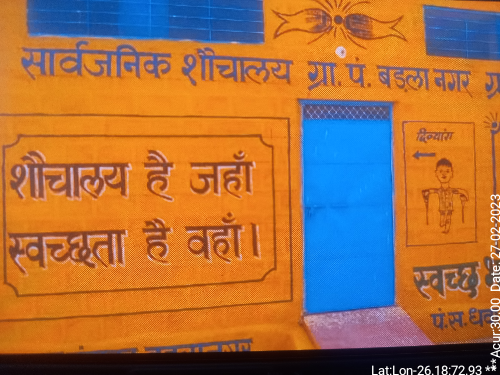 सार्वजनिक शौचालय ग्रा. पं. बडला नगर
शौचालय है जहाँ
स्वच्छता है वहाँ।
दिव्यांग
स्वच्छ
पं.स.
Lat:Lon-26.18:72.93
**Acur:30.00 Date: 27-02-2023